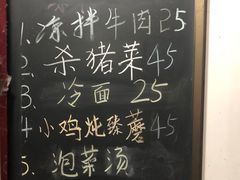 1.凉拌牛肉25
2.杀猪菜45
3.冷面 25
4小鸡炖臻蘑45
5.泡菜汤